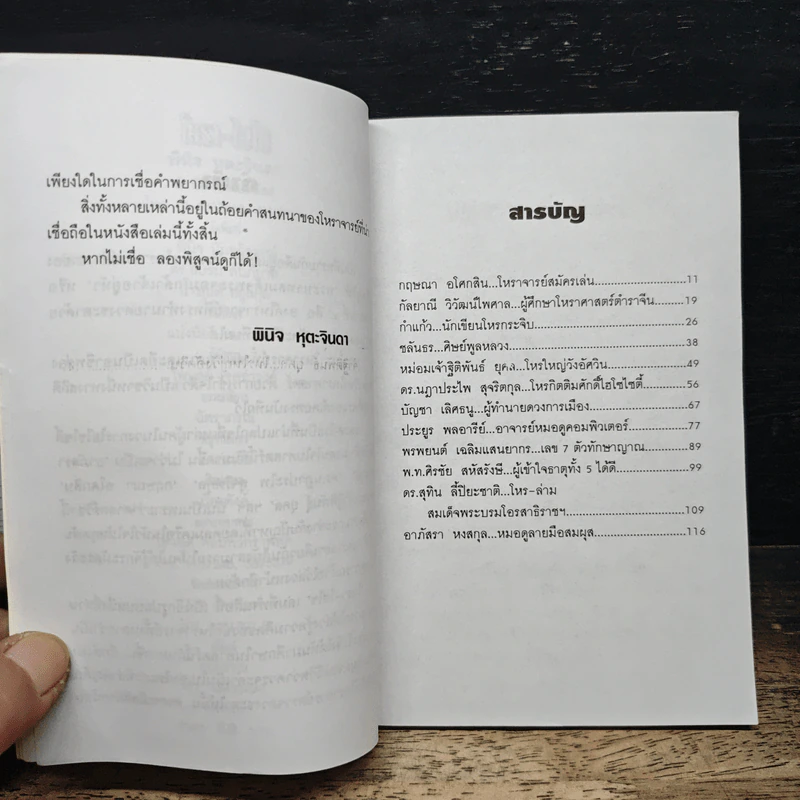 เพียงใดในการเชื่อคำพยากรณ์
สิ่งทั้งหลายเหล่านี้อยู่ในถ้อยคำสนทนาของโหราจารย์ที่น่า
เชื่อถือในหนังสือเล่มนี้ทั้งสิ้น
หากไม่เชื่อ ลองพิสูจน์ดูก็ได้!
พินิจ หุตะจินดา
สารบัญ
กฤษณา อโศกสิน...โหราจารย์สมัครเล่น...11
กัลยาณี วิวัฒน์ไพศาล...ผู้ศึกษาโหราศาสตร์ตำราจีน...19
กำแก้ว...นักเขียนโหรกระจิบ...26
ชลันธร...ศิษย์พูลหลวง...38
หม่อมเจ้าฐิติพันธ์ ยุคล...โหรใหญ่วังอัศวิน...49
ดร.นฎาประไพ สุจริตกุล...โหรกิตติมศักดิ์ไฮโซไซตี้...56
บัญชา เลิศธนู...ผู้ทำนายดวงการเมือง...67
ประยูร พลอารีย์...อาจารย์หมอดูคอมพิวเตอร์...77
พรพยนต์ เฉลิมแสนยากร...เลข 7 ตัวทักษาญาณ...89
พ.ท.ศิรชัย สหัสรังษี...ผู้เข้าใจธาตุทั้ง 5 ได้ดี...99
ดร.สุทิน ลี้ปิยะชาติ...โหร-ล่าม
สมเด็จพระบรมโอรสาธิราชฯ...109
อาภัสรา หงสกุล...หมอดูลายมือสมผุส...116